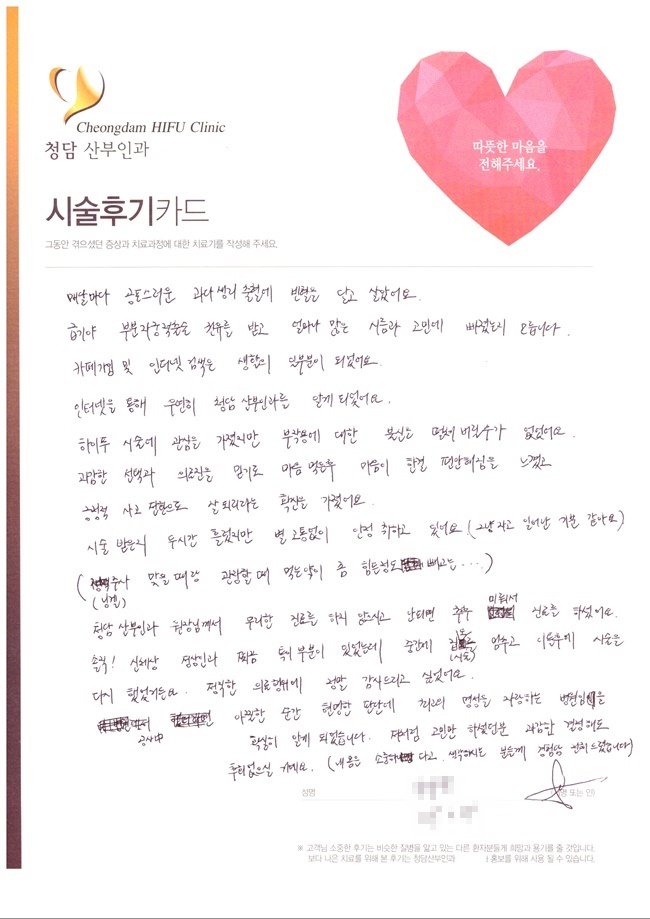 Cheongdam HIFU Clinic
청담 산부인과
따뜻한 마음을
전해주세요.
시술후기카드
그동안 겪으셨던 증상과 치료과정에 대한 치료기를 작성해 주세요.
매달마다 공포스러운 과다 생리 출혈에 빈혈을 달고 살았어요.
급기야 부분자궁적출술 권유를 받고 얼마나 많은 시름과 고민에 빠졌는지 모릅니다.
카페가입 및 인터넷 검색은 생활의 일부분이 되었어요.
인터넷을 통해 우연히 청담 산부인과를 알게 되었어요.
하이푸 시술에 관심을 가졌지만 부작용에 대한 불신을 떨쳐 버릴수가 없었어요.
과감한 선택과 의료진을 믿기로 마음 먹은후 마음이 한결 편안해짐을 느꼈고
긍정적 사고 전환으로 잘 되리라는 확진을 가졌어요.
시술 받은지 두시간 흘렀지만 별 고통없이 안정 취하고 있어요 (그냥 자고 일어난 기분 같아요)
( 주사 맞을 때랑 관장할 때 먹는약이 좀 힘든정도 빼고는....)
(닝겔)
청담 산부인과 원장님께서 무리한 진료를 하지 않으시고 안되면 추후 미뤄서 진료를 하셨어요.
솔직! 신체상 정상인과 찌끔 틀릭 부분이 있었는데 중간에 멈추고 이틀후에 시술을
(시술)
다시 했었거든요. 정직한 의료행위에 정말 감사드리고 싶었어요.
아찔한 순간 현명한 판단에 최고의 명성을 자랑하는 병원임을
확실히 알게 되었습니다. 저처럼 고민만 하셨던분 과감한 결정해도
후회없으실 거예요. (내 몸은 소중하 다고 생각하시는 분들께 경험담 전해 드렸습니다)
성명
(서명 또는 인)
※ 고객님 소중한 후기는 비슷한 질병을 앓고 있는 다른 환자분들게 희망과 용기를 줄 것입니다.
보다 나은 치료를 위해 본 후기는 청담산부인과 홍보를 위해 사용 될 수 있습니다.